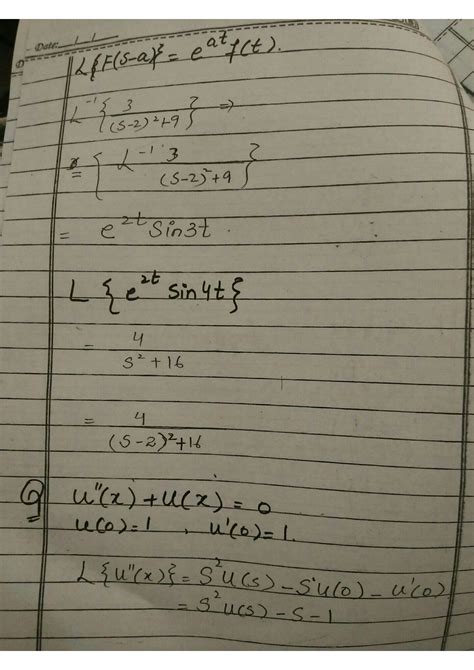 Date: / /
L{F(s-a)} = e^{at} f(t).
L^{-1} { 3 / (s-2)^2+9 } ⇒
{ L^{-1} 3 / (s-2)^2+9 }
= e^{2t} sin3t.
L { e^{2t} sin4t }
= 4 / s^2+16
= 4 / (s-2)^2+16
Q u''(x)+u(x)=0
u(0)=1 , u'(0)=1.
L{u''(x)} = s^2 u(s) - s u(0) - u'(0)
= s^2 u(s) - s - 1